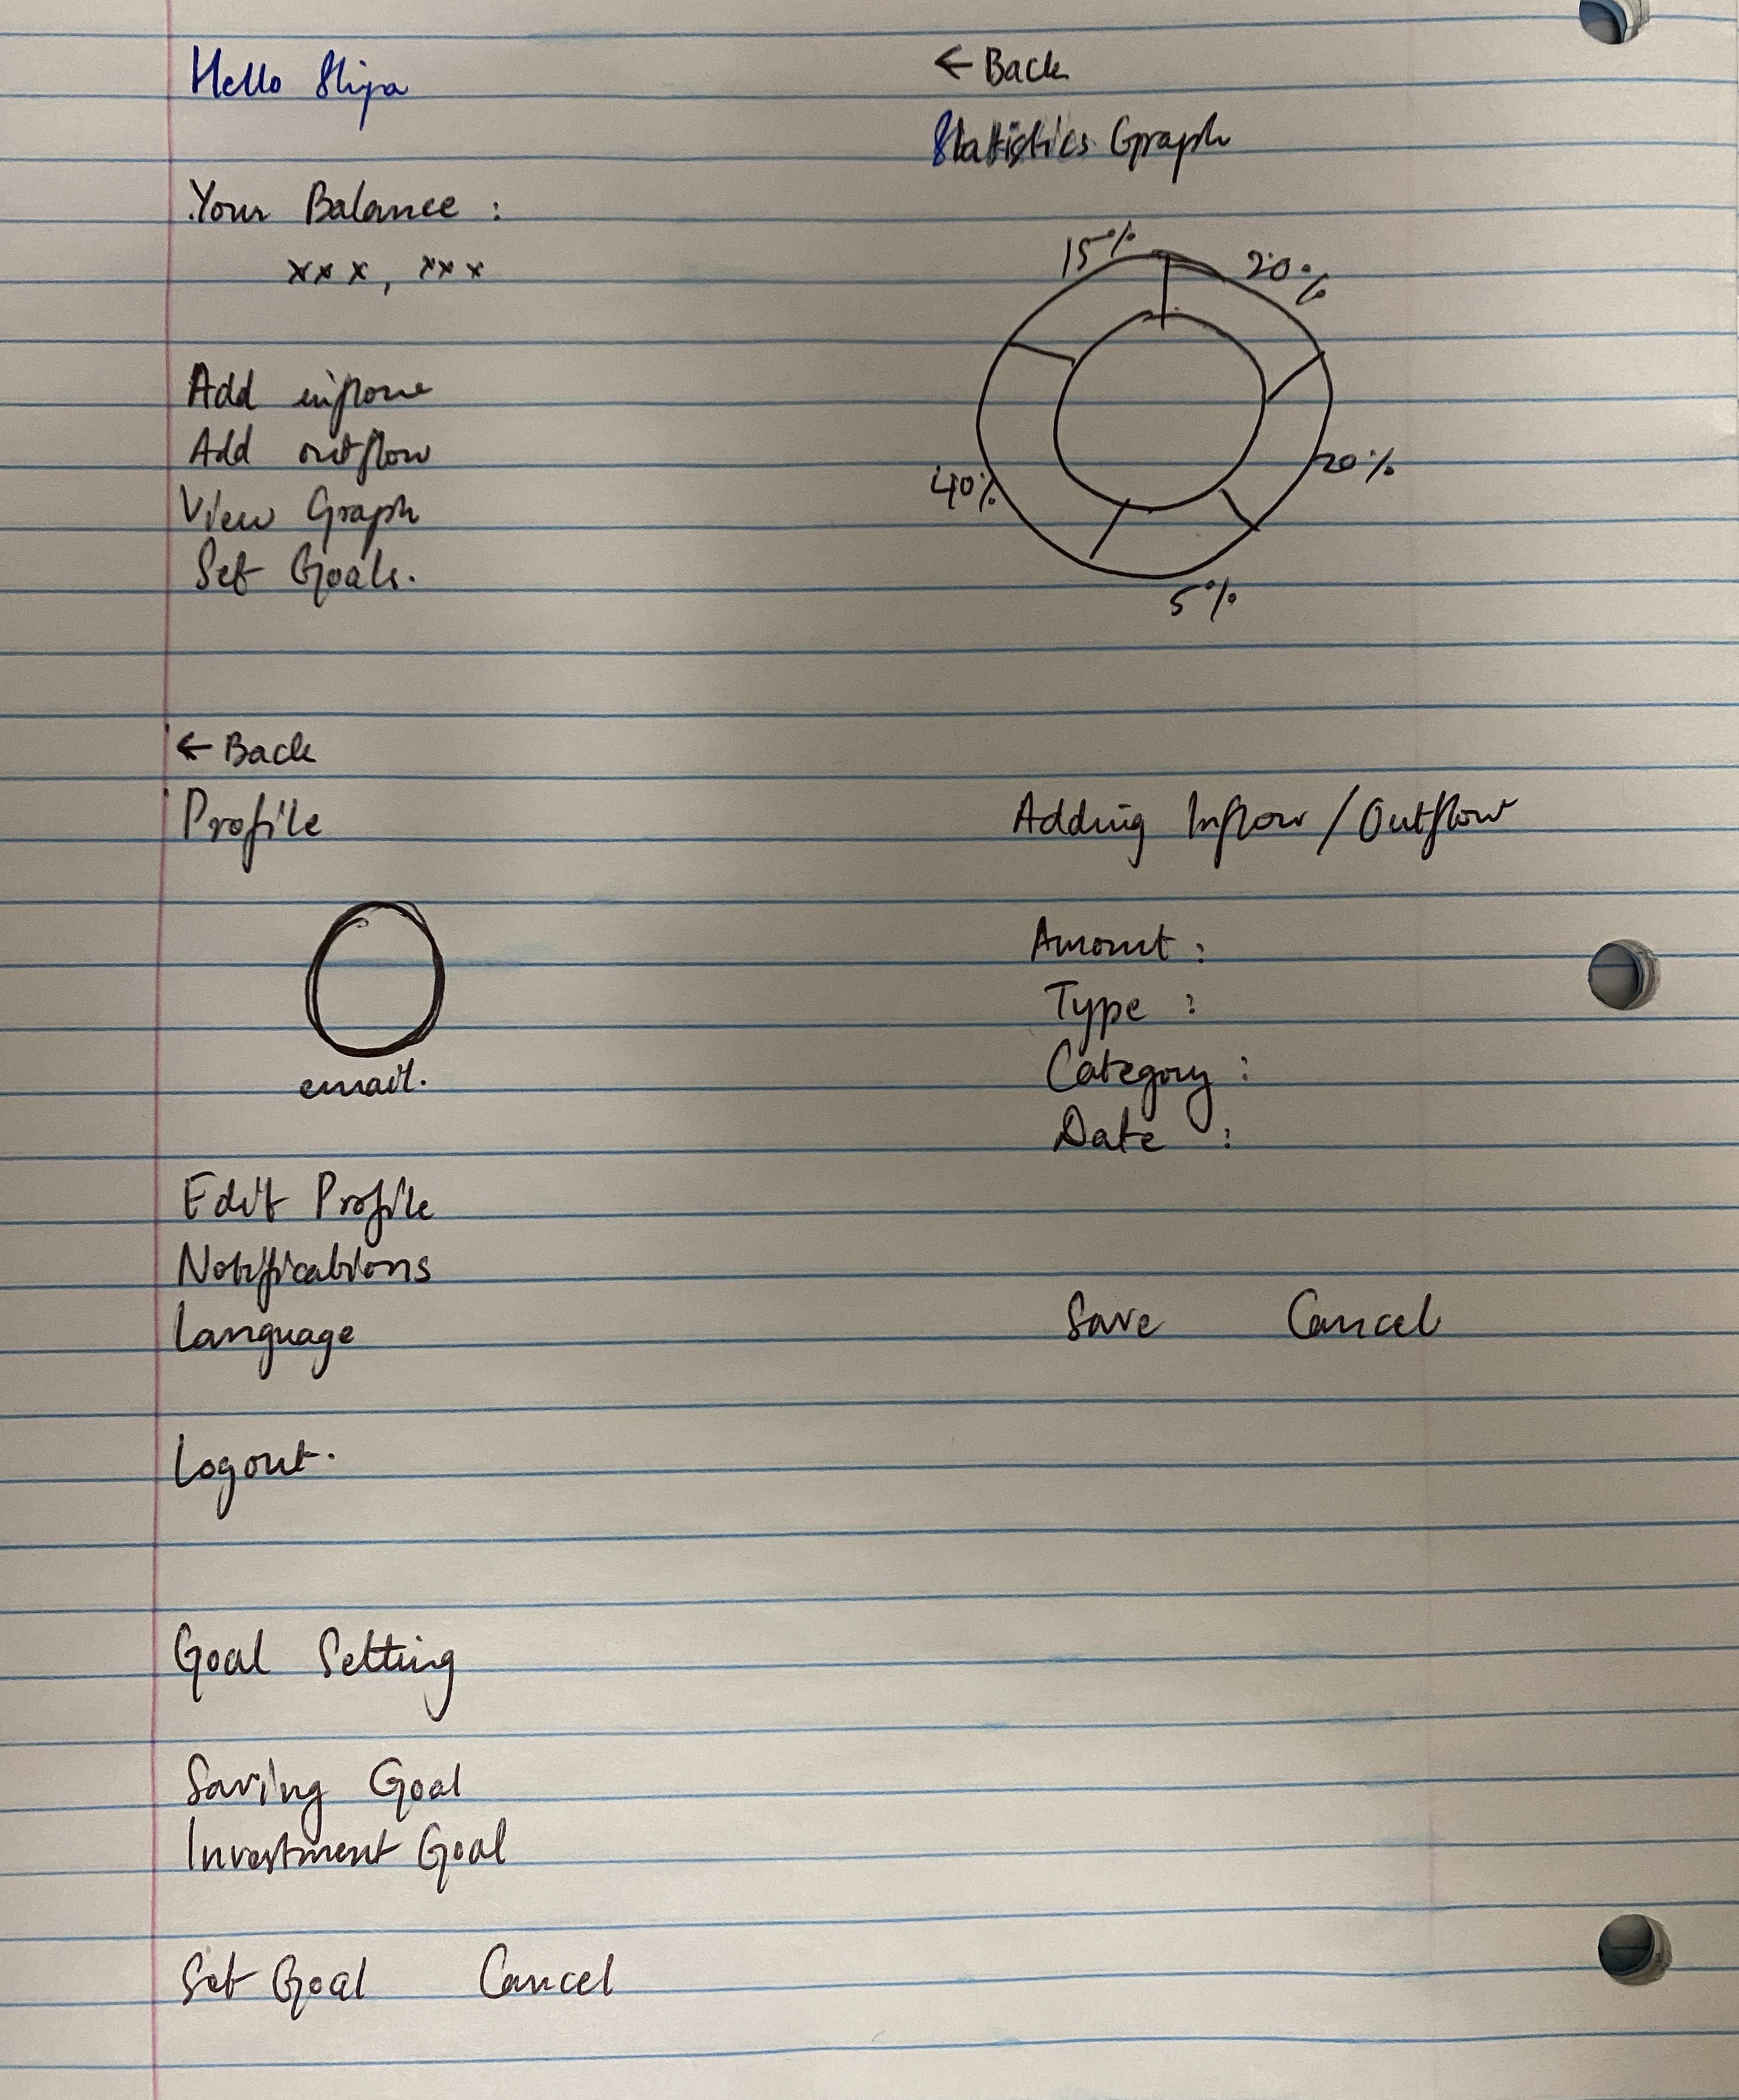 Hello Shipa
Your Balance :
xxx, xxx
Add inflow
Add outflow
View Graph
Set Goals.
← Back
Statistics Graph
15%
20%
20%
40%
5%
← Back
Profile
email.
Edit Profile
Notifications
Language
Logout.
Adding Inflow / Outflow
Amount :
Type :
Category :
Date :
Save Cancel
Goal Setting
Saving Goal
Investment Goal
Set Goal Cancel